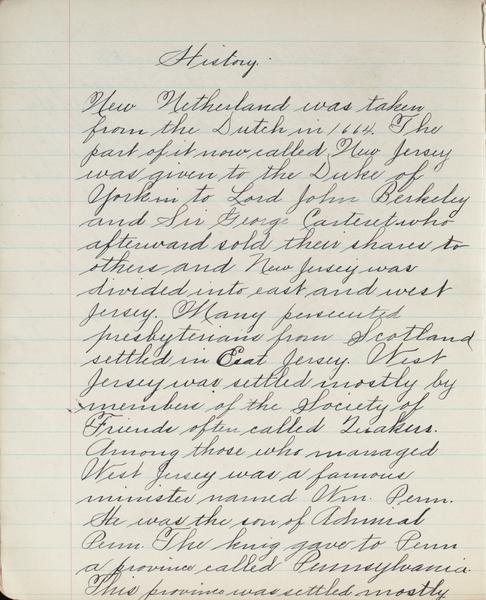 History.
New Netherland was taken
from the Dutch in 1664. The
part of it now called New Jersey
was given to the Duke of
York in to Lord John Berkeley
and Sir George Carteret who
afterward sold their shares to
others and New Jersey was
divided into east and west
Jersey. Many persecuted
presbyterians from Scotland
settled in East Jersey. West
Jersey was settled mostly by
members of the Society of
Friends often called Quakers.
Among those who managed
West Jersey was a famous
minister named Wm. Penn.
He was the son of Admiral
Penn. The king gave to Penn
a province called Pennsylvania.
This province was settled mostly